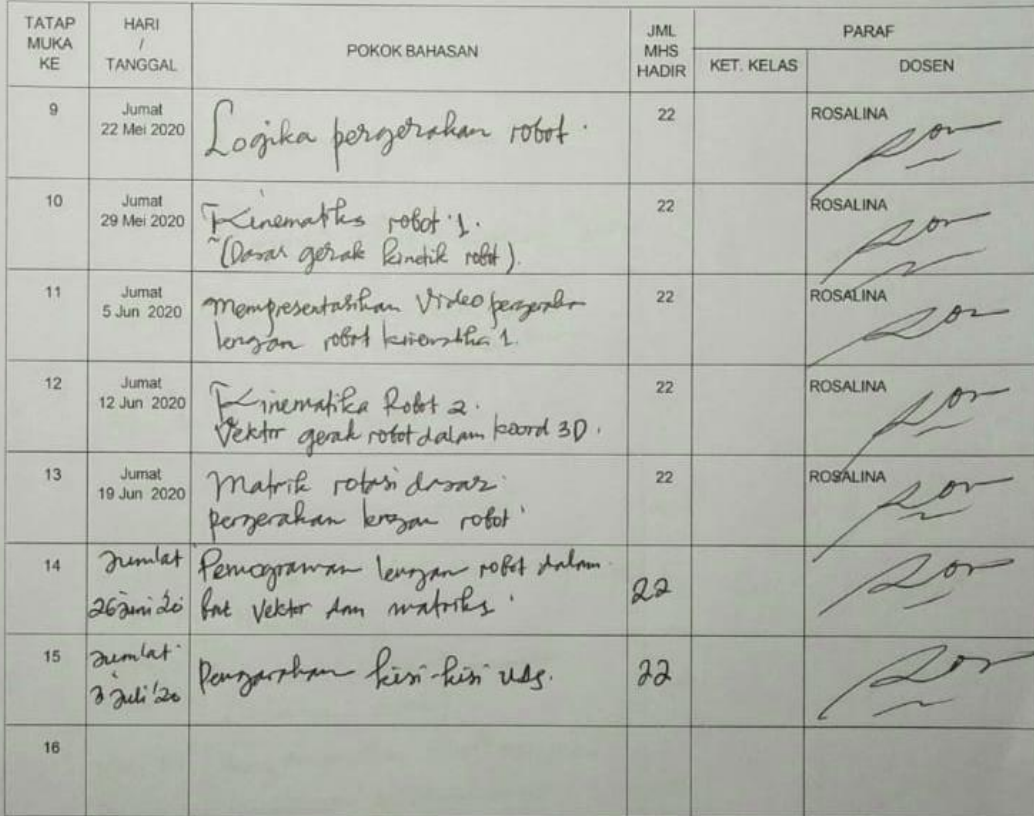 TATAP MUKA KE
HARI / TANGGAL
POKOK BAHASAN
JML MHS HADIR
PARAF
KET. KELAS
DOSEN
9
Jumat
22 Mei 2020
Logika pergerakan robot.
22
ROSALINA
10
Jumat
29 Mei 2020
Kinematiks robot 1.
(Dasar gerak kinetik robot).
22
ROSALINA
11
Jumat
5 Jun 2020
Mempresentasikan Video pergerakan
lengan robot kinematika 1.
22
ROSALINA
12
Jumat
12 Jun 2020
Kinematika Robot 2.
Vektor gerak robot dalam koord 3D.
22
ROSALINA
13
Jumat
19 Jun 2020
Matrik rotasi dasar
pergerakan lengan robot
22
ROSALINA
14
Jum'at
26 Juni 20
Pemograman lengan robot dalam
Vektor dan matriks.
22
15
Jum'at
3 Juli '20
Pengarahan kisi-kisi UAS.
22
16